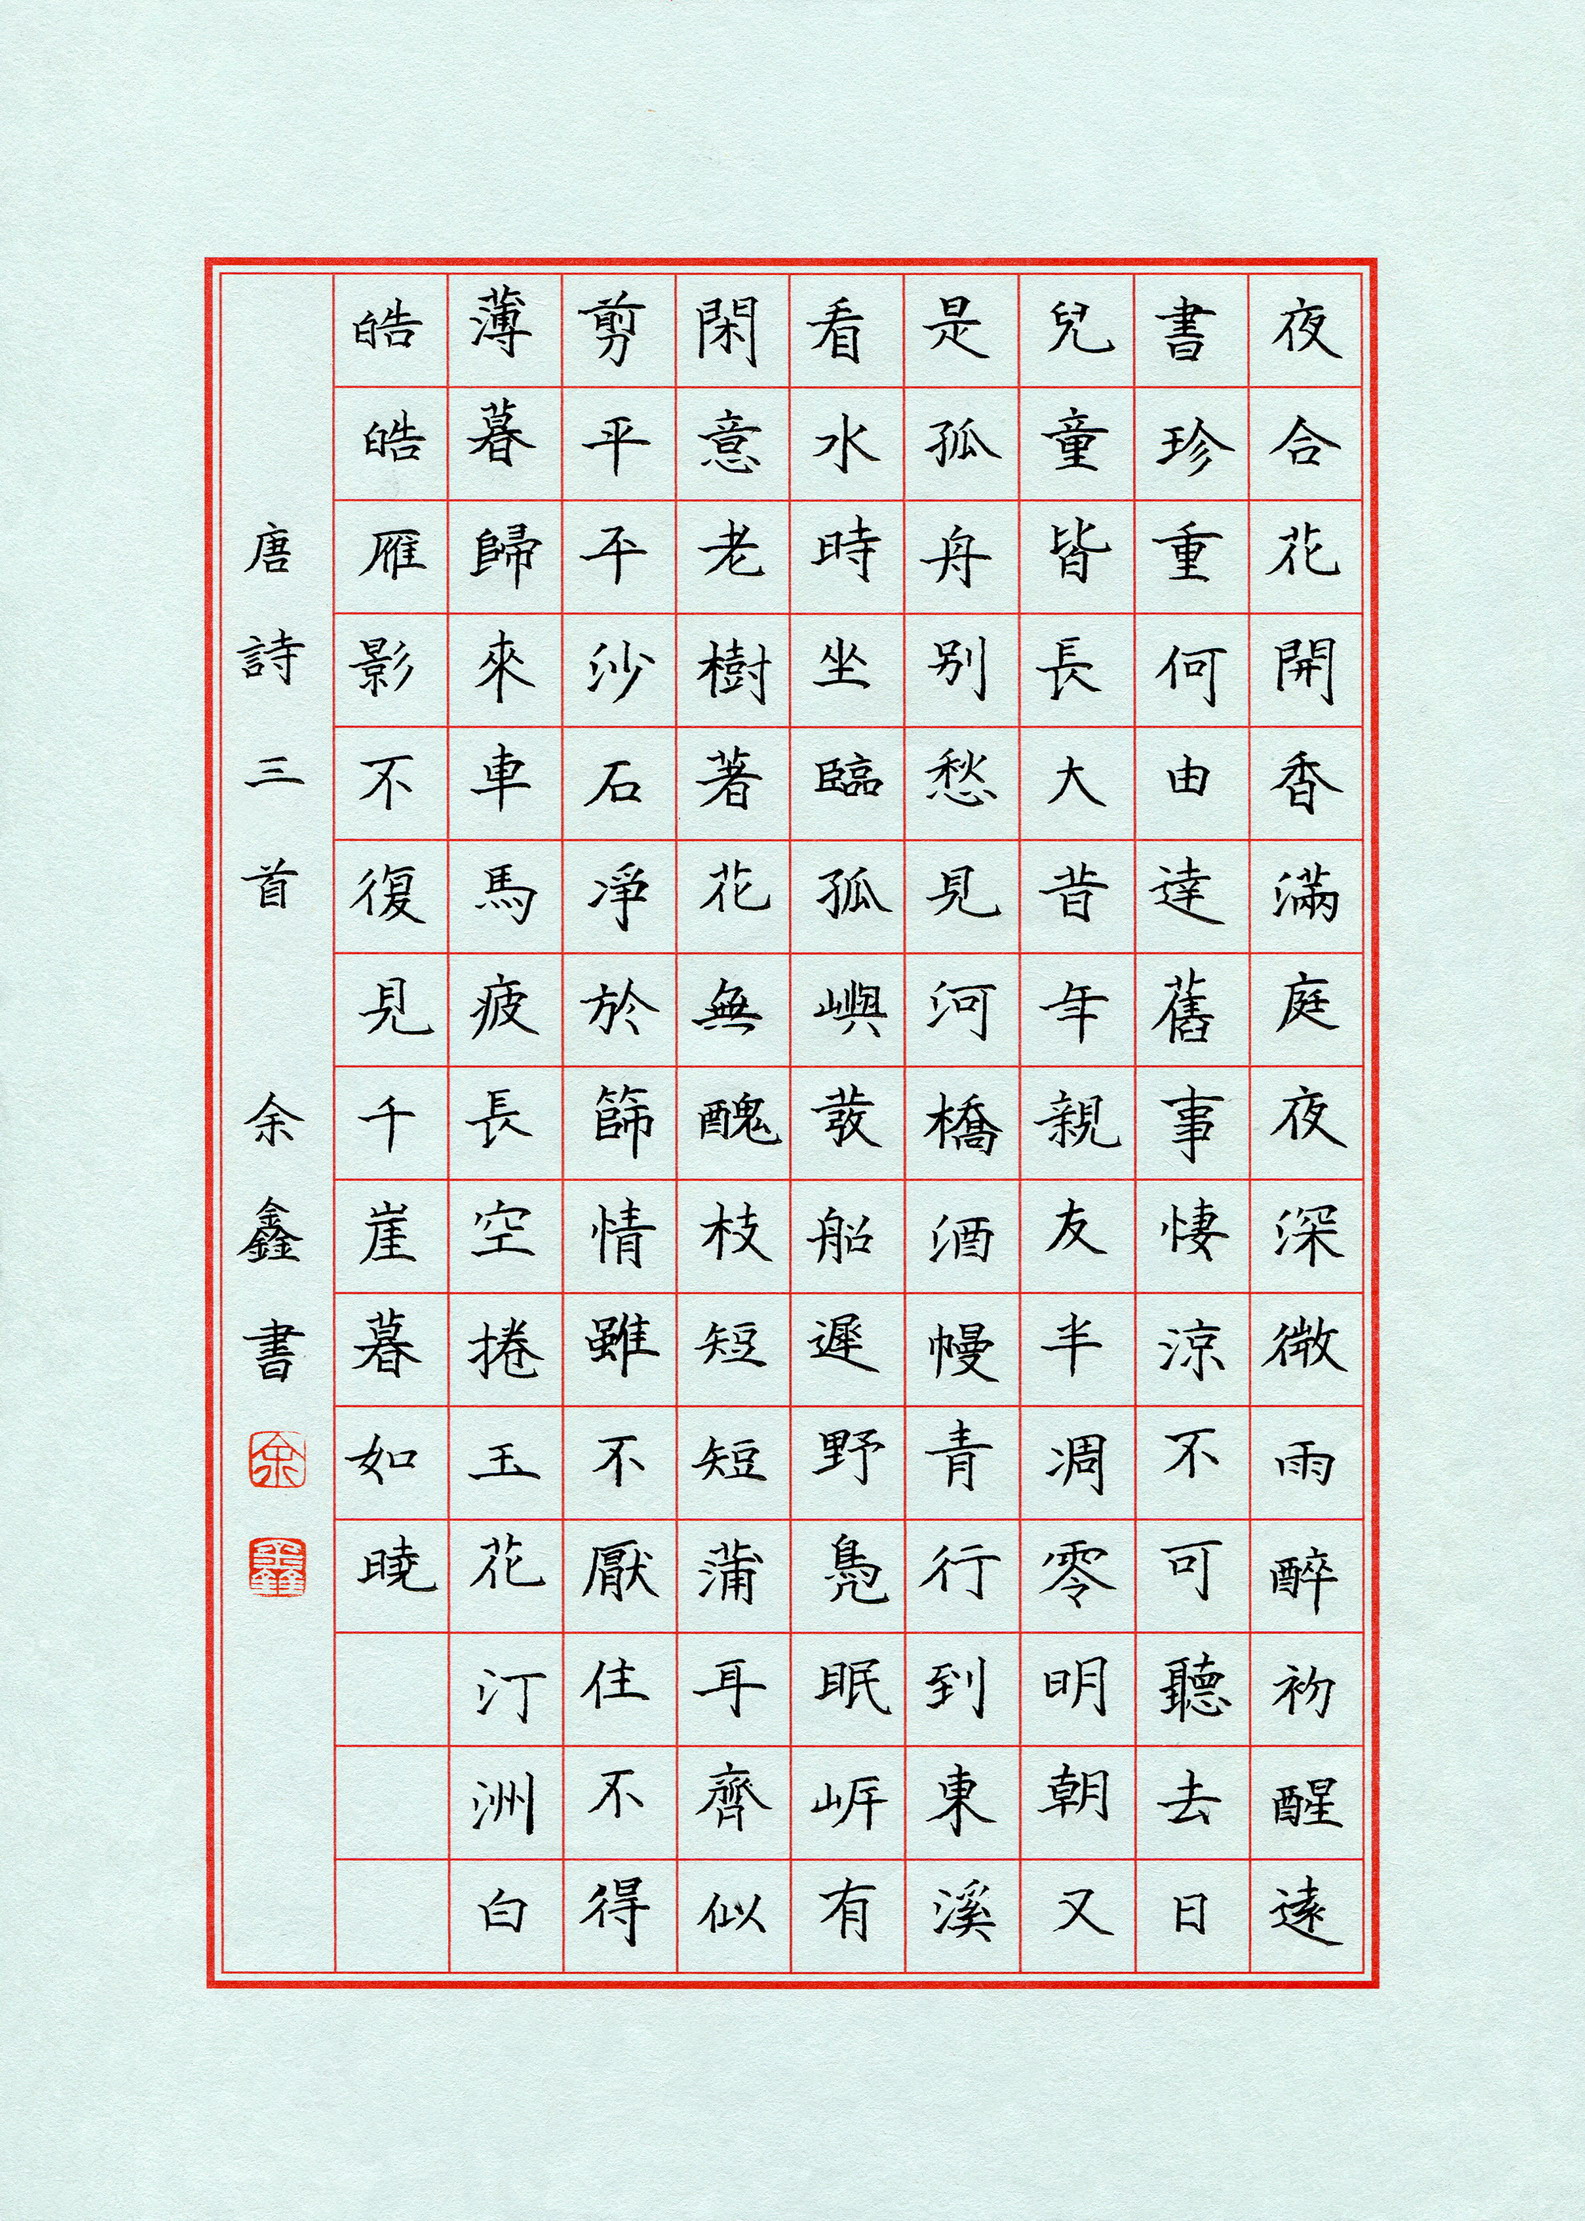 夜合花開香滿庭夜深微雨醉初醒遠
書珍重何由達舊事悽涼不可聽去日
兒童皆長大昔年親友半凋零明朝又
是孤舟别愁見河橋酒幔青行到東溪
看水時坐臨孤嶼發船遲野鳧眠岸有
閑意老樹著花無醜枝短短蒲耳齊似
剪平平沙石淨於篩情雖不厭住不得
薄暮歸來車馬疲長空捲玉花汀洲白
皓皓雁影不復見千崖暮如曉
唐詩三首 余鑫書
余
鑫